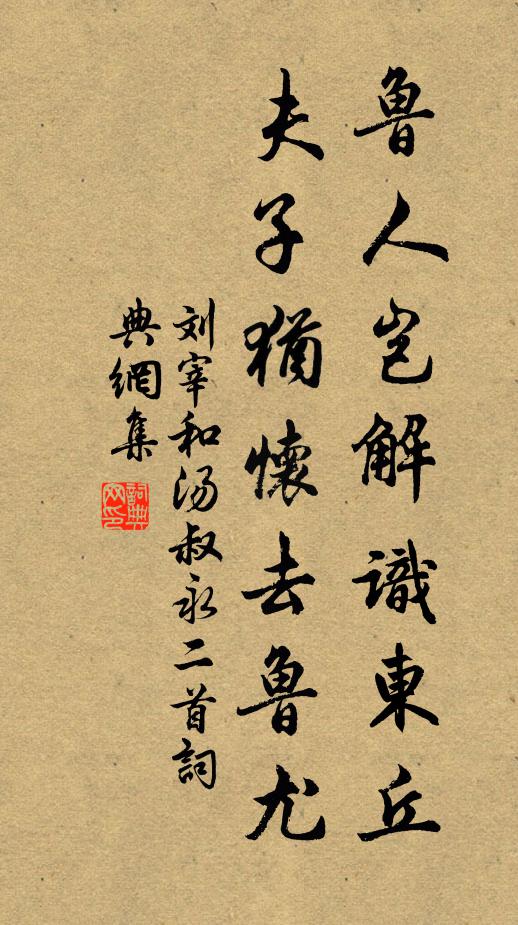 魯人豈解識東丘
夫子猶懷去魯尤
刘宰和汤叔永二首詞
典網集
詞典
网印